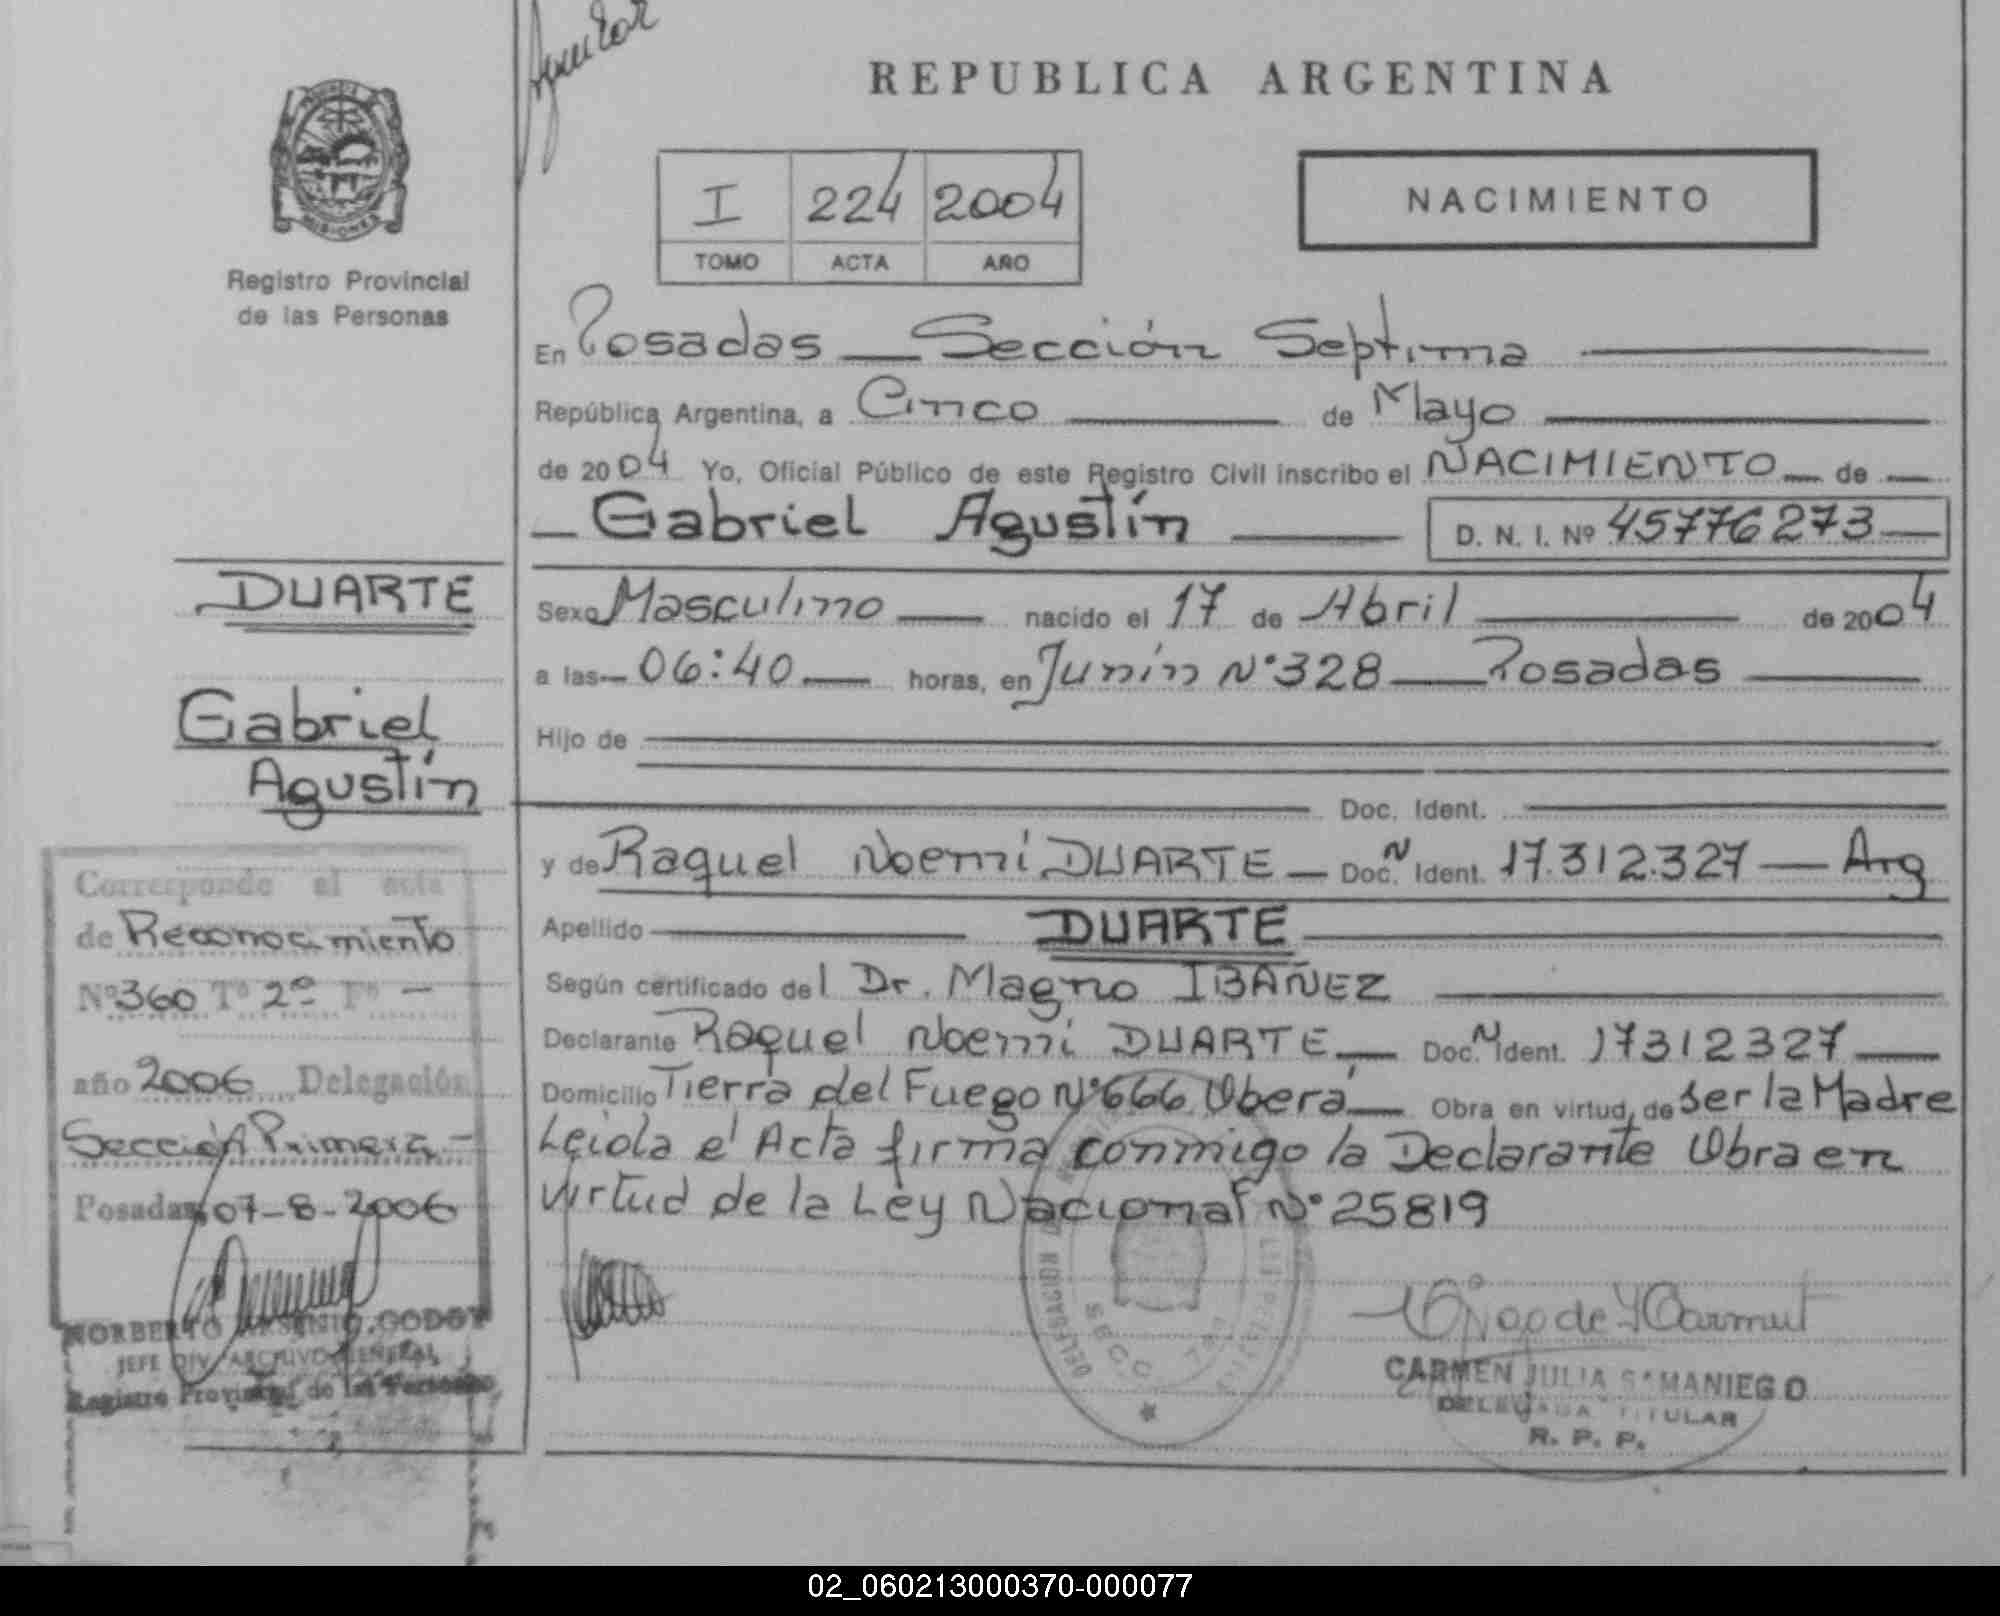 REPUBLICA ARGENTINA
MISIONES
Registro Provincial
de las Personas
I 224 2004
TOMO ACTA AÑO
NACIMIENTO
En Posadas — Sección Septima
República Argentina, a Cinco de Mayo
de 2004 Yo, Oficial Público de este Registro Civil inscribo el NACIMIENTO de
Gabriel Agustín D. N. I. Nº 45776273
Sexo Masculino nacido el 17 de Abril de 2004
a las 06:40 horas, en Junín Nº 328 — Posadas
Hijo de
Doc. Ident.
y de Raquel Noemí DUARTE — Doc. N Ident. 17.312.327 — Arg
Apellido DUARTE
Según certificado del Dr. Magno IBAÑEZ
Declarante Raquel Noemí DUARTE — Doc. N Ident. 17312327
Domicilio Tierra del Fuego Nº 666 Oberá — Obra en virtud de ser la Madre
Leida el Acta firma conmigo la Declarante Obra en
virtud de la Ley Nacional Nº 25819
CARMEN JULIA SAMANIEGO
DELEGADA TITULAR
R. P. P.
DUARTE
Gabriel
Agustín
Corresponde al acta
de Reconocimiento
Nº 360 Tº 2º Fº —
año 2006 Delegación
Sección Primera -
Posadas, 07-8-2006
NORBERTO ARSENIO GODOY
JEFE DIV. ARCHIVO GENERAL
Registro Provincial de las Personas
02_060213000370-000077